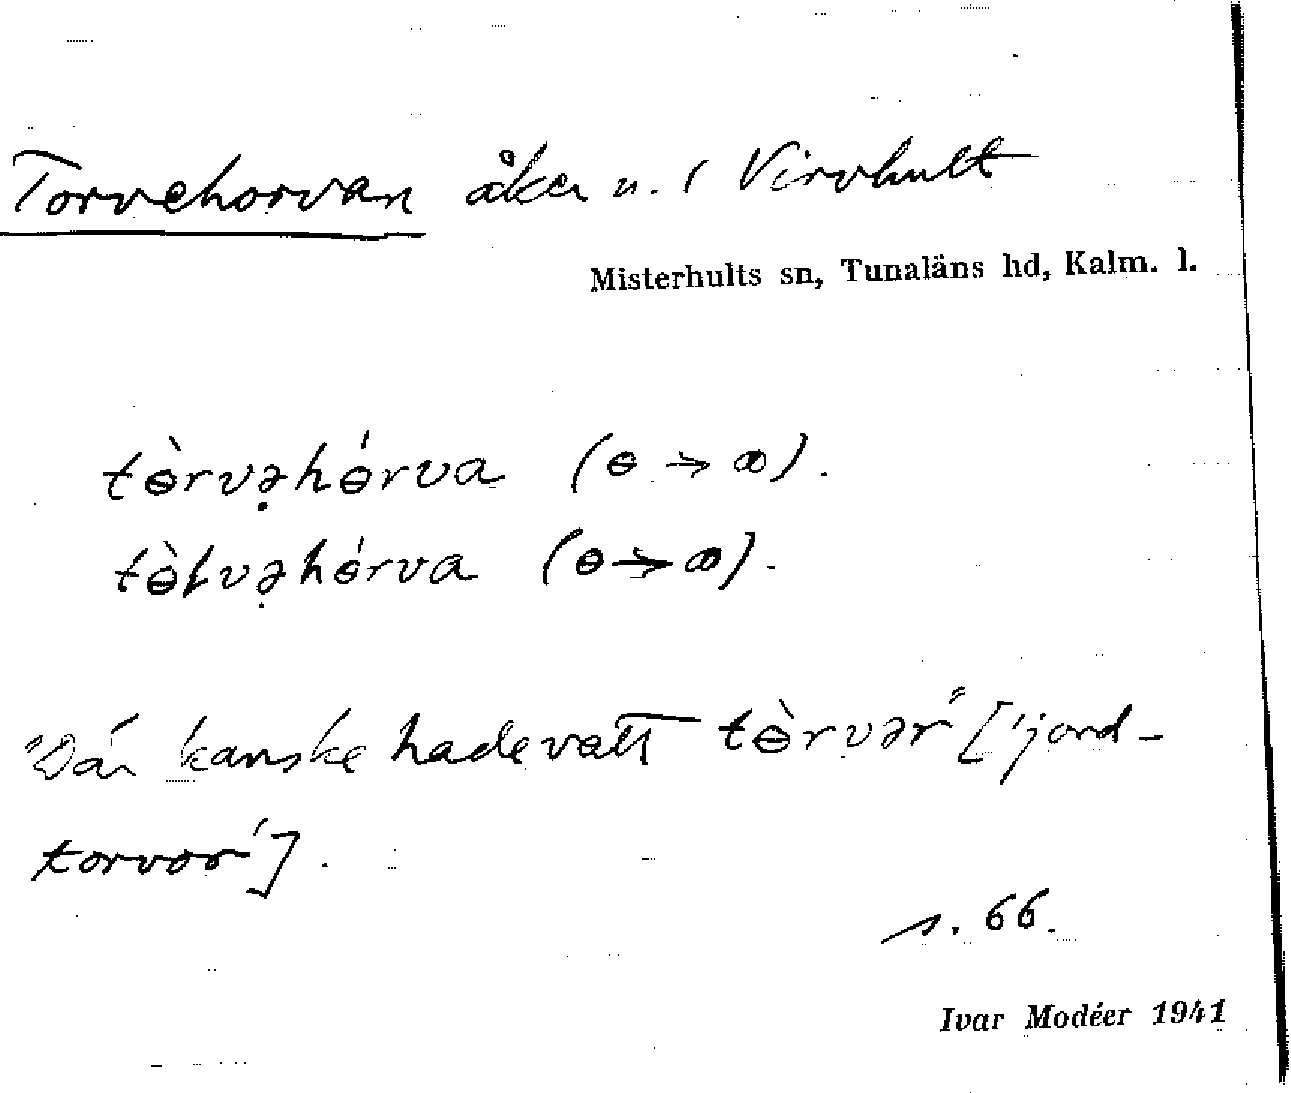 Torvehorvan åker u. / Virvhult
Misterhults sn, Tunaläns hd, Kalm. l.
tɵ̀rvə̣hɵ́rva (ɵ → ꝏ).
tɵ̀ƚvə̣hɵ́rva (ɵ → ꝏ).
"Där kanske hade vatt tɵ̀rvər" ['jord-
torvor'].
s. 66.
Ivar Modéer 1941